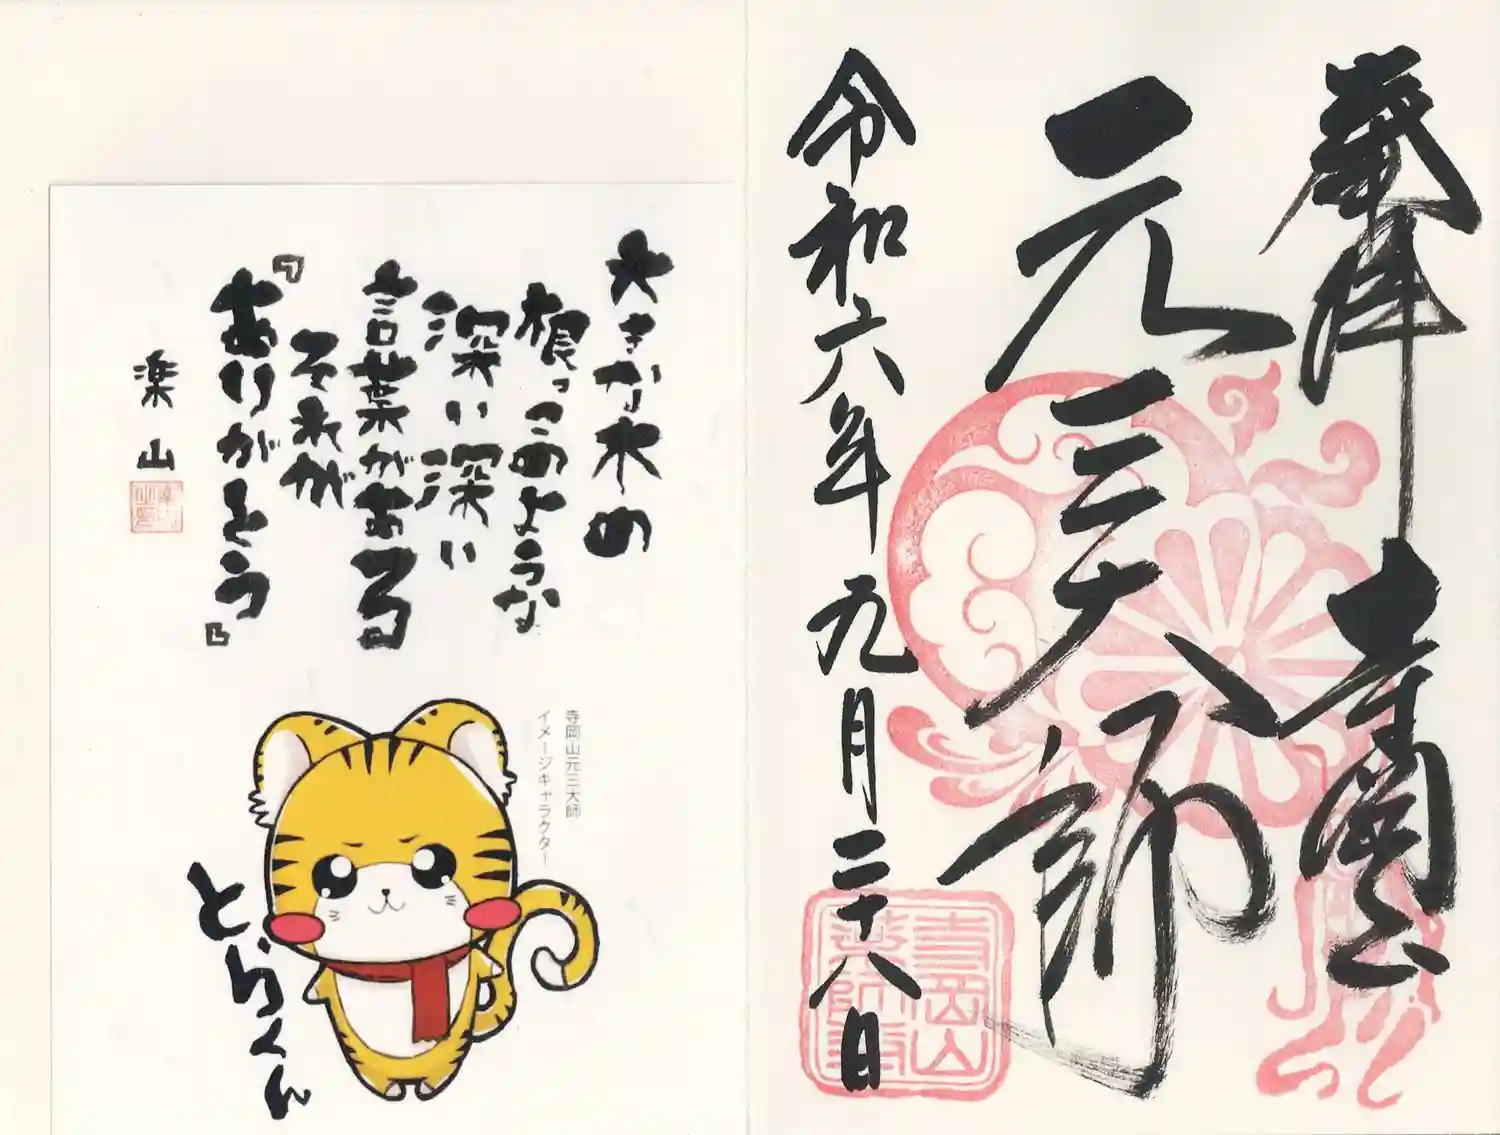 奉拝
寺岡山
元三大師
令和六年九月二十八日
寺岡山
薬師寺
大きな木の
根っこのような
深い深い
言葉がある
それが
『ありがとう』
楽山
寺岡山元三大師
イメージキャラクター
とらくん